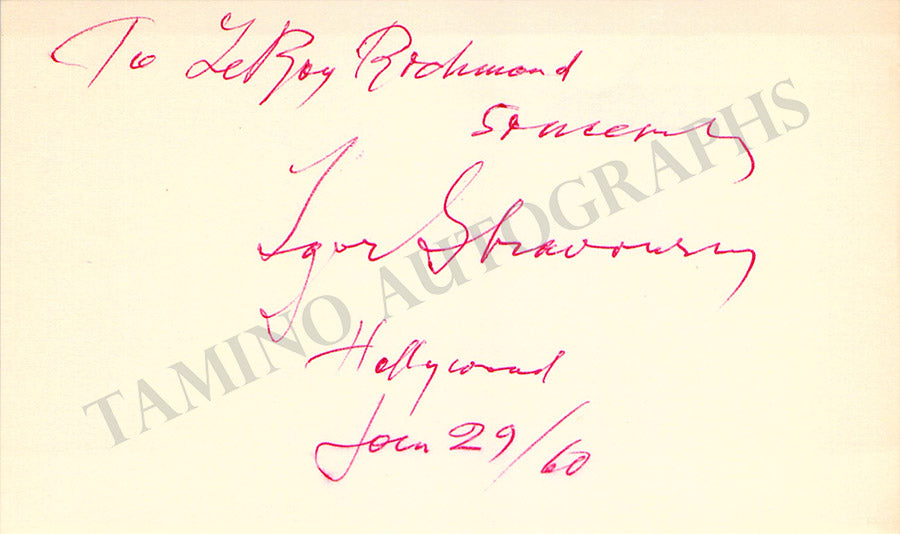 To LeRoy Richmond
Sincerely
Igor Stravinsky
Hollywood
Jan 29/60
TAMINO AUTOGRAPHS